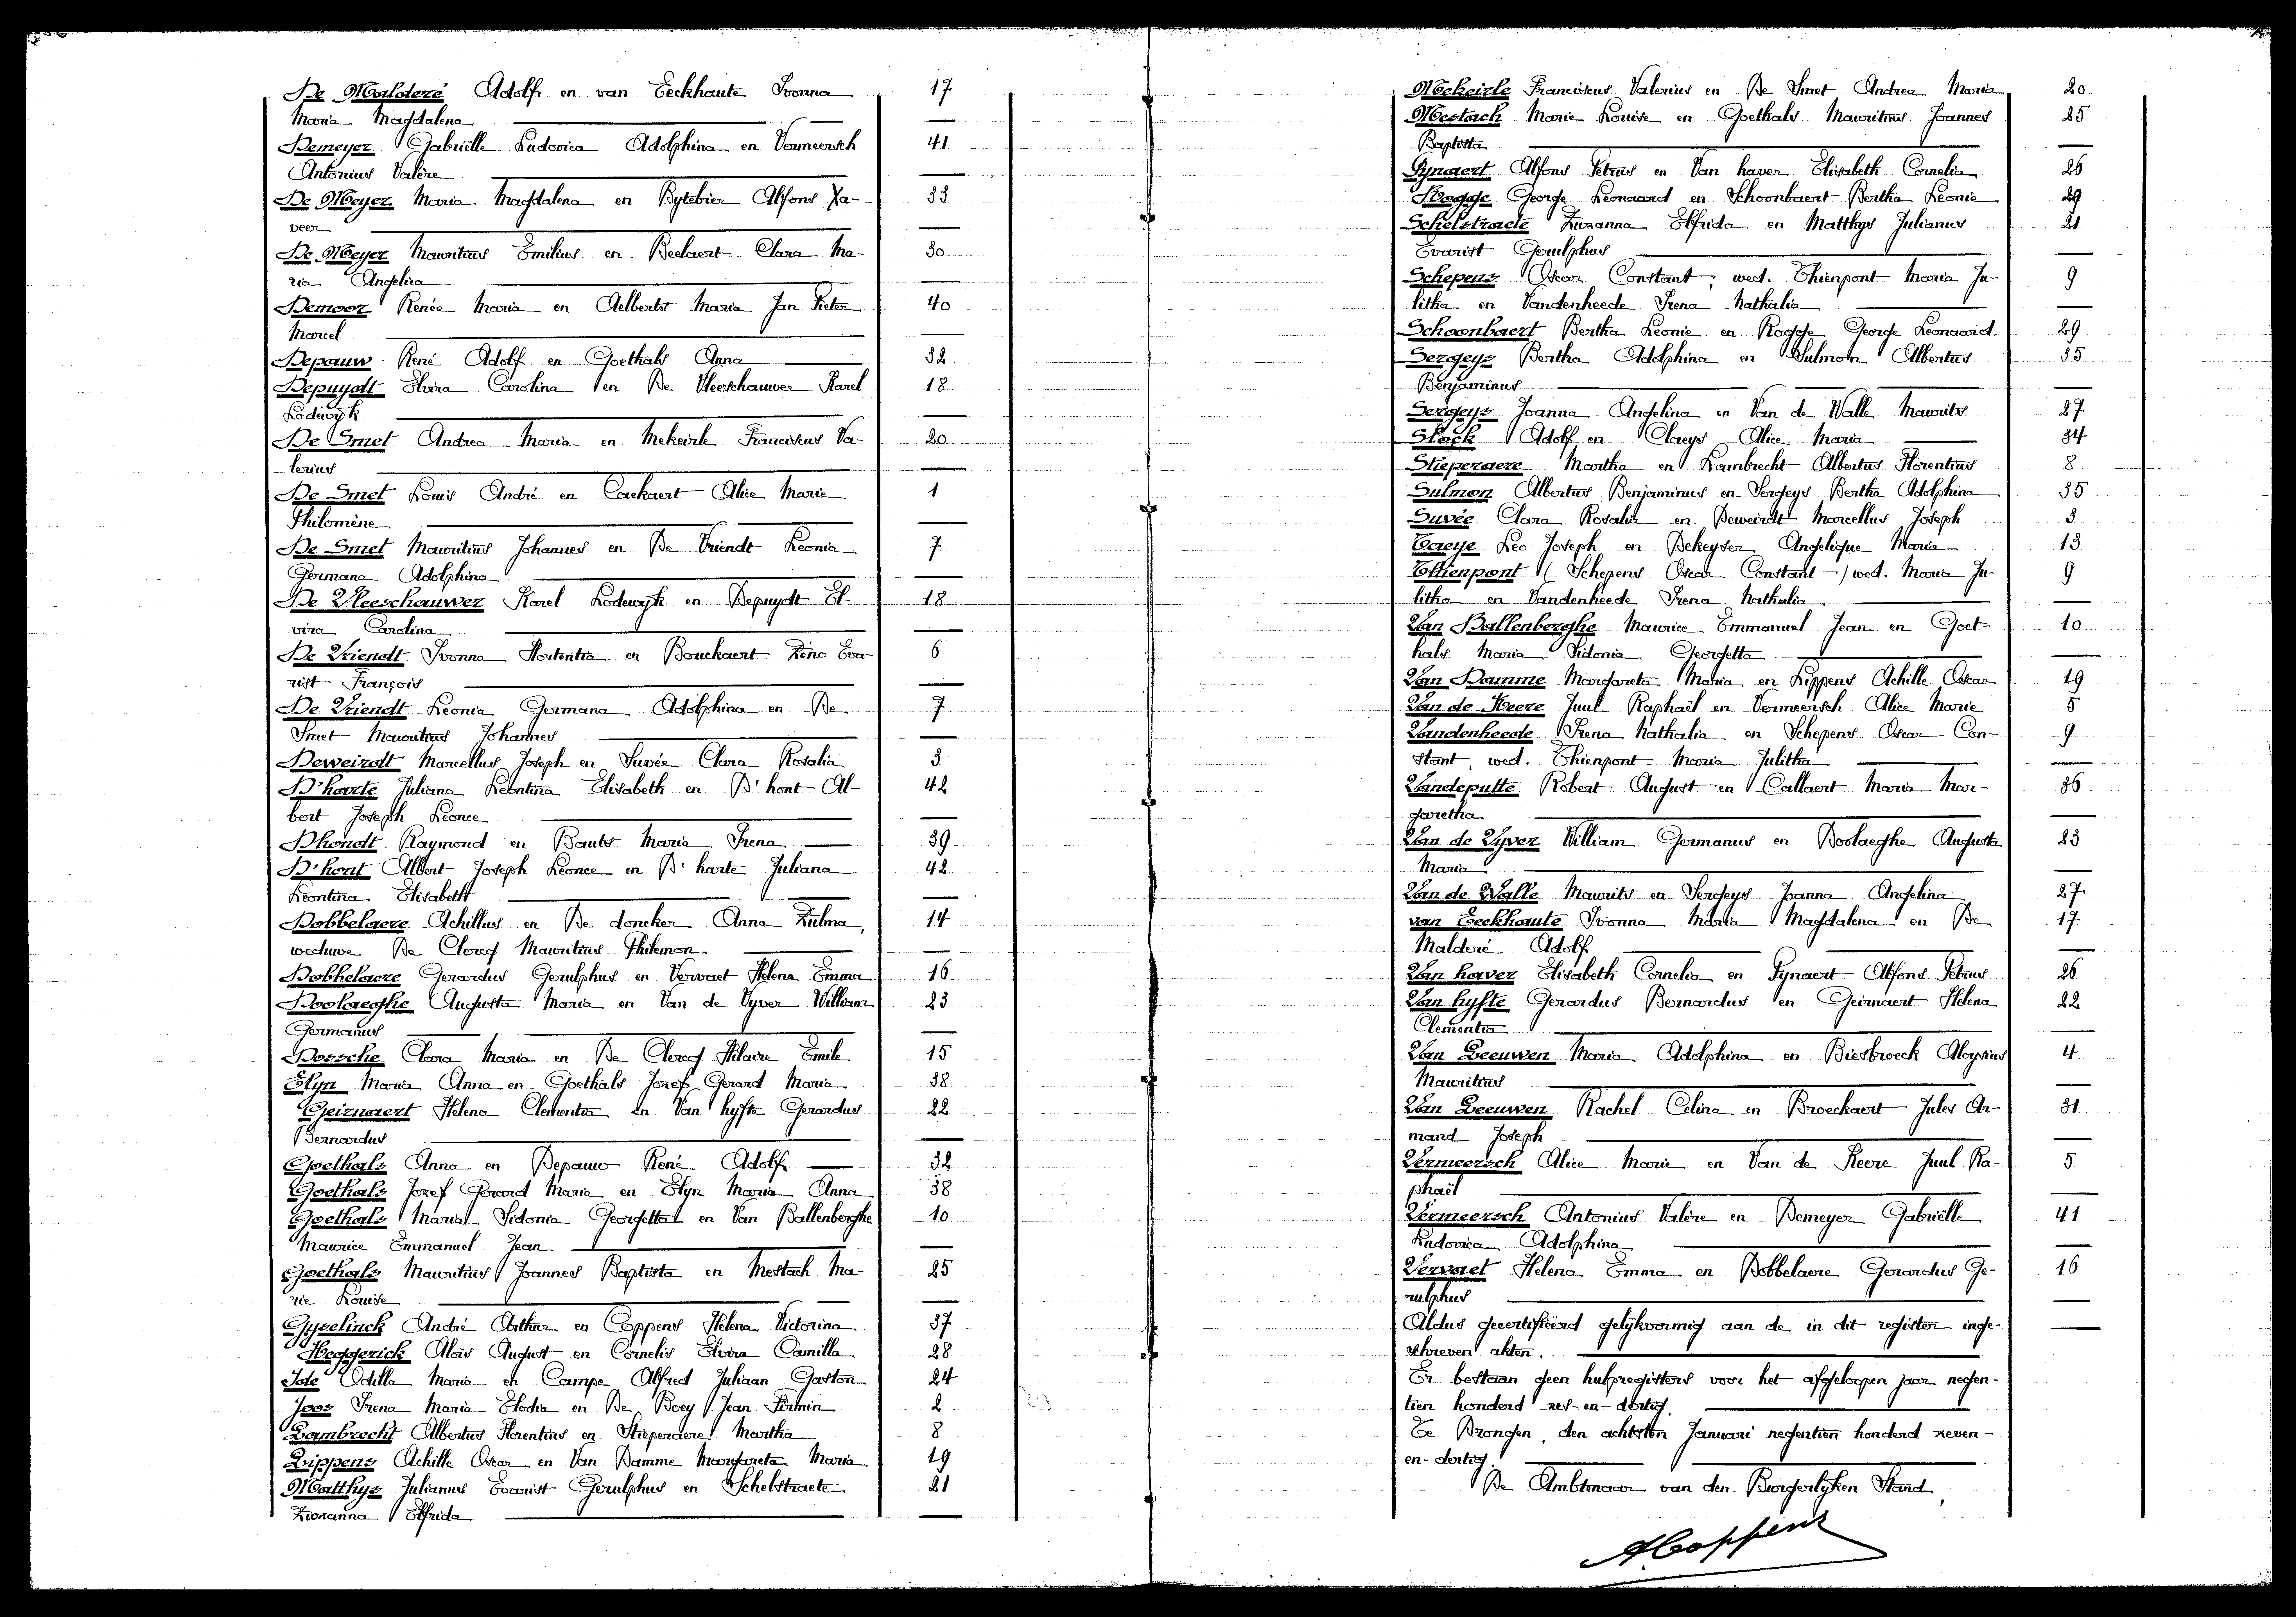 De Malderé Adolf en van Eeckhaute Ivonna 17
Maria Magdalena
Demeyer Gabriëlle Ludovica Adolphina en Vermeersch 41
Antonius Valère
De Meyer Maria Magdalena en Bytebier Alfons Xa- 33
veer
De Meyer Mauritius Emilius en Beelaert Clara Ma- 30
ria Angelica
Demoor Renée Maria en Aelberts Maria Jan Pieter 40
Marcel
Depauw René Adolf en Goethals Anna 32
Depuydt Elvira Carolina en De Vleeschauwer Karel 18
Lodewyk
De Smet Andrea Maria en Mekeirle Franciscus Va- 20
lerius
De Smet Louis André en Cackaert Alice Marie 1
Philomène
De Smet Mauritius Johannes en De Vriendt Leonia 7
Germana Adolphina
De Vleeschauwer Karel Lodewyk en Depuydt El- 18
vira Carolina
De Vriendt Ivonna Hortentia en Bouckaert Zéno Eva- 6
rist François
De Vriendt Leonia Germana Adolphina en De 7
Smet Mauritius Johannes
Deweirdt Marcellus Joseph en Suvée Clara Rosalia 3
D'harte Juliana Leontina Elisabeth en D'hont Al- 42
bert Joseph Leonce
Dhondt Raymond en Bauts Maria Irena 39
D'hont Albert Joseph Leonce en D'harte Juliana 42
Leontina Elisabeth
Dobbelaere Achillus en De doncker Anna Zulma, 14
weduwe De Clercq Mauritius Philemon
Dobbelaere Gerardus Gerulphus en Vervaet Helena Emma 16
Doolaeghe Augusta Maria en Van de Vyver William 23
Germanus
Dossche Clara Maria en De Clercq Hilaire Emile 15
Elyn Maria Anna en Goethals Jozef Gerard Maria 38
Geirnaert Helena Clementia en Van hyfte Gerardus 22
Bernardus
Goethals Anna en Depauw René Adolf 32
Goethals Jozef Gerard Maria en Elyn Maria Anna 38
Goethals Maria Sidonia Georgetta en Van Ballenberghe 10
Maurice Emmanuel Jean
Goethals Mauritius Joannes Baptista en Mestach Ma- 25
rie Louise
Gyselinck André Arthur en Coppens Helena Victorina 37
Heggerick Aloïs August en Cornelis Elvira Camilla 28
Jole Odilla Maria en Campe Alfred Juliaan Gaston 24
Joos Irena Maria Elodia en De Boey Jean Firmin 2
Lambrecht Albertus Florentius en Stieperaere Martha 8
Lippens Achille Oscar en Van Damme Margareta Maria 19
Matthys Julianus Evarist Gerulphus en Schelstraete 21
Zuzanna Elfrida
Mekeirle Franciscus Valerius en De Smet Andrea Maria 20
Mestach Marie Louise en Goethals Mauritius Joannes 25
Baptista
Pynaert Alfons Petrus en Van haver Elisabeth Cornelia 26
Rogge George Leonaard en Schoonbaert Bertha Leonie 29
Schelstraete Zuzanna Elfrida en Matthys Julianus 21
Evarist Gerulphus
Schepens Oscar Constant, wed. Thienpont Maria Ju- 9
litha en Vandenheede Irena Nathalia
Schoonbaert Bertha Leonie en Rogge George Leonaard. 29
Sergeys Bertha Adolphina en Sulmon Albertus 35
Benjaminus
Sergeys Joanna Angelina en Van de Walle Maurits 27
Slock Adolf en Claeys Alice Maria 34
Stieperaere Martha en Lambrecht Albertus Florentius 8
Sulmon Albertus Benjaminus en Sergeys Bertha Adolphina 35
Suvée Clara Rosalia en Deweirdt Marcellus Joseph 3
Taeye Leo Joseph en Dekeyser Angelique Maria 13
Thienpont (Schepens Oscar Constant) wed. Maria Ju- 9
litha en Vandenheede Irena Nathalia
Van Ballenberghe Maurice Emmanuel Jean en Goet- 10
hals Maria Sidonia Georgetta
Van Damme Margareta Maria en Lippens Achille Oscar 19
Van de Keere Juul Raphaël en Vermeersch Alice Marie 5
Vandenheede Irena Nathalia en Schepens Oscar Con- 9
stant, wed. Thienpont Maria Julitha
Vandeputte Robert August en Callaert Maria Mar- 36
garetha
Van de Vyver William Germanus en Doolaeghe Augusta 23
Maria
Van de Walle Maurits en Sergeys Joanna Angelina 27
van Eeckhaute Ivonna Maria Magdalena en De 17
Malderé Adolf
Van haver Elisabeth Cornelia en Pynaert Alfons Petrus 26
Van hyfte Gerardus Bernardus en Geirnaert Helena 22
Clementia
Van Leeuwen Maria Adolphina en Biesbroeck Aloysius 4
Mauritius
Van Leeuwen Rachel Celina en Broeckaert Jules Ar- 31
mand Joseph
Vermeersch Alice Marie en Van de Keere Juul Ra- 5
phaël
Vermeersch Antonius Valère en Demeyer Gabriëlle 41
Ludovica Adolphina
Vervaet Helena Emma en Dobbelaere Gerardus Ge- 16
rulphus
Aldus gecertifieerd gelijkvormig aan de in dit register inge-
schreven akten.
Er bestaan geen hulpregisters voor het afgeloopen jaar negen-
tien honderd zes-en-dertig.
Te Drongen, den achtsten Januari negentien honderd zeven-
en-dertig.
De Ambtenaar van den Burgerlyken Stand,
A Coppens